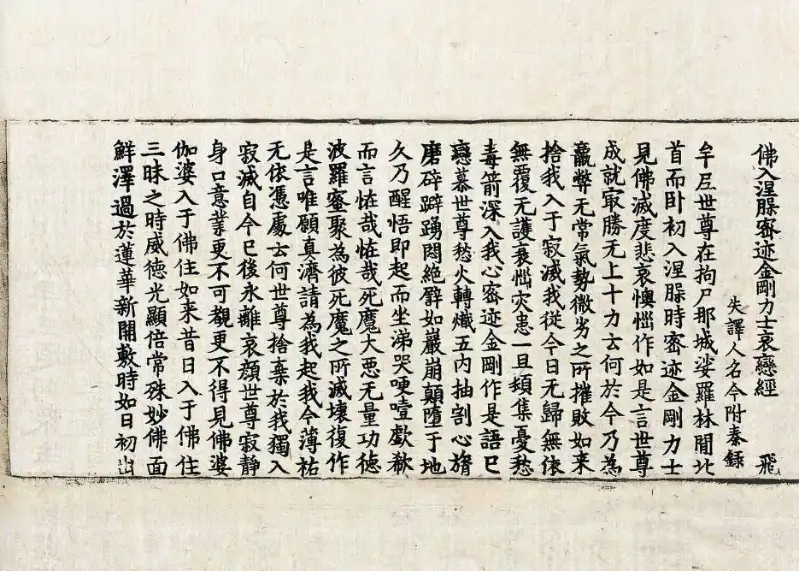 佛入涅槃密迹金剛力士哀戀經 飛
失譯人名今附秦録
牟尼世尊在拘尸那城娑羅林間北
首而卧初入涅槃時密迹金剛力士
見佛滅度悲哀懊惱作如是言世尊
成就㝡勝无上十力云何於今乃為
羸弊无常氣勢微劣之所摧敗如来
捨我入于寂滅我從今日无歸無依
無覆无護衰惱灾患一旦頓集憂愁
毒箭深入我心密迹金剛作是語已
戀慕世尊愁火轉熾五内抽割心膂
磨碎躃踊悶絶譬如巖崩顛墮于地
久乃醒悟即起而坐涕哭哽噎歔欷
而言恠哉恠哉死魔大惡无量功德
波羅蜜聚為彼死魔之所滅壞復作
是言唯願真濟請為我起我今薄祐
无依憑處云何世尊捨棄於我獨入
寂滅自今已後永離哀顔世尊寂静
身口意業更不可覩更不得見佛婆
伽婆入于佛住如来昔日入于佛住
三昧之時威德光顯倍常殊妙佛面
鮮澤過於蓮華新開敷時如日初出